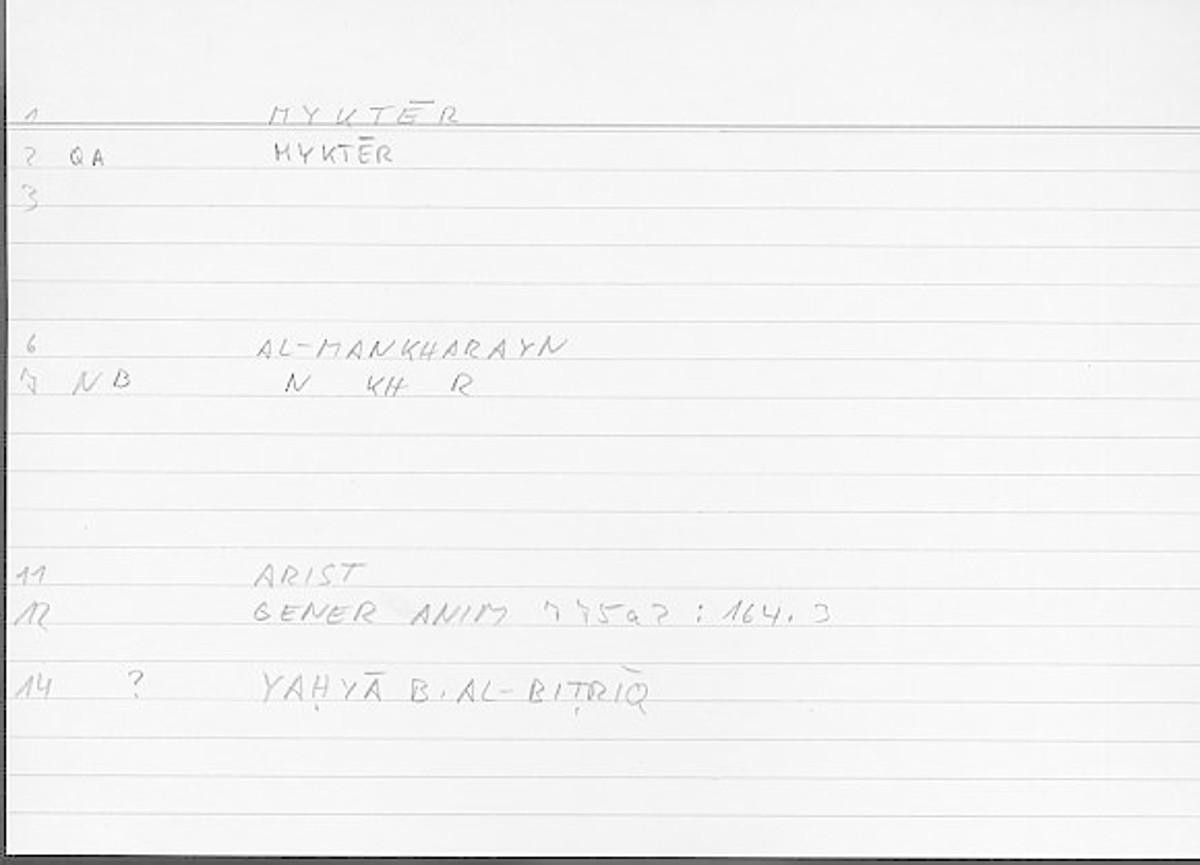 1 MYKTĒR
2 QA MYKTĒR
3
6 AL-MANKHARAYN
7 NB N KH R
11 ARIST
12 GENER ANIM 775a2 : 164.3
14 ? YAḤYĀ B. AL-BIṬRĪQ